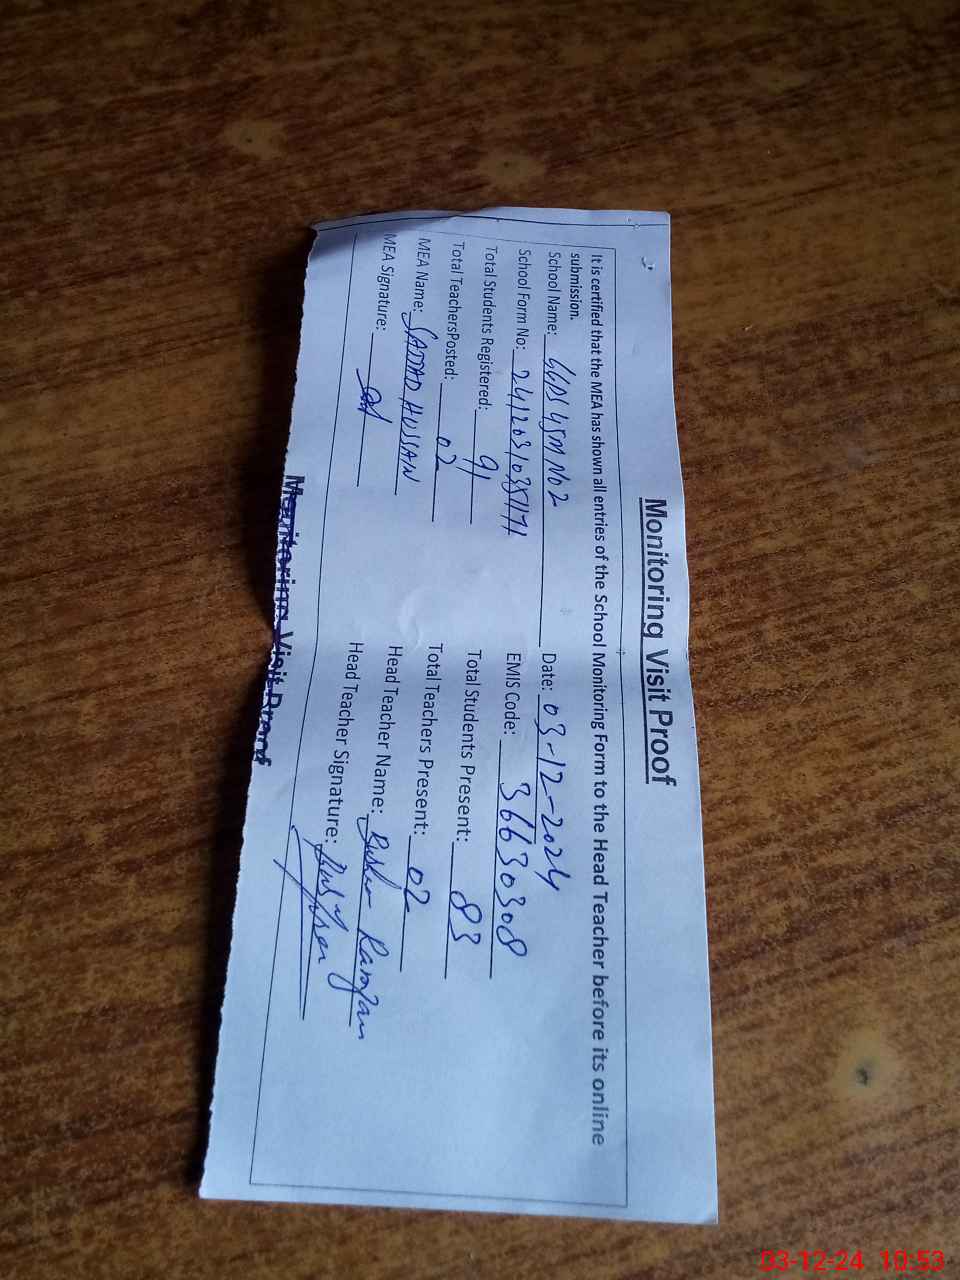 Monitoring Visit Proof
It is certified that the MEA has shown all entries of the School Monitoring Form to the Head Teacher before its online
submission.
School Name: No 2 Date: 03-12-2024
School Form No: EMIS Code: 36630308
Total Students Registered: 91 Total Students Present: 83
Total TeachersPosted: 02 Total Teachers Present: 02
MEA Name: SAJJAD HUSSAIN Head Teacher Name:
MEA Signature: Head Teacher Signature:
Monitoring Visit Proof
03-12-24 10:53